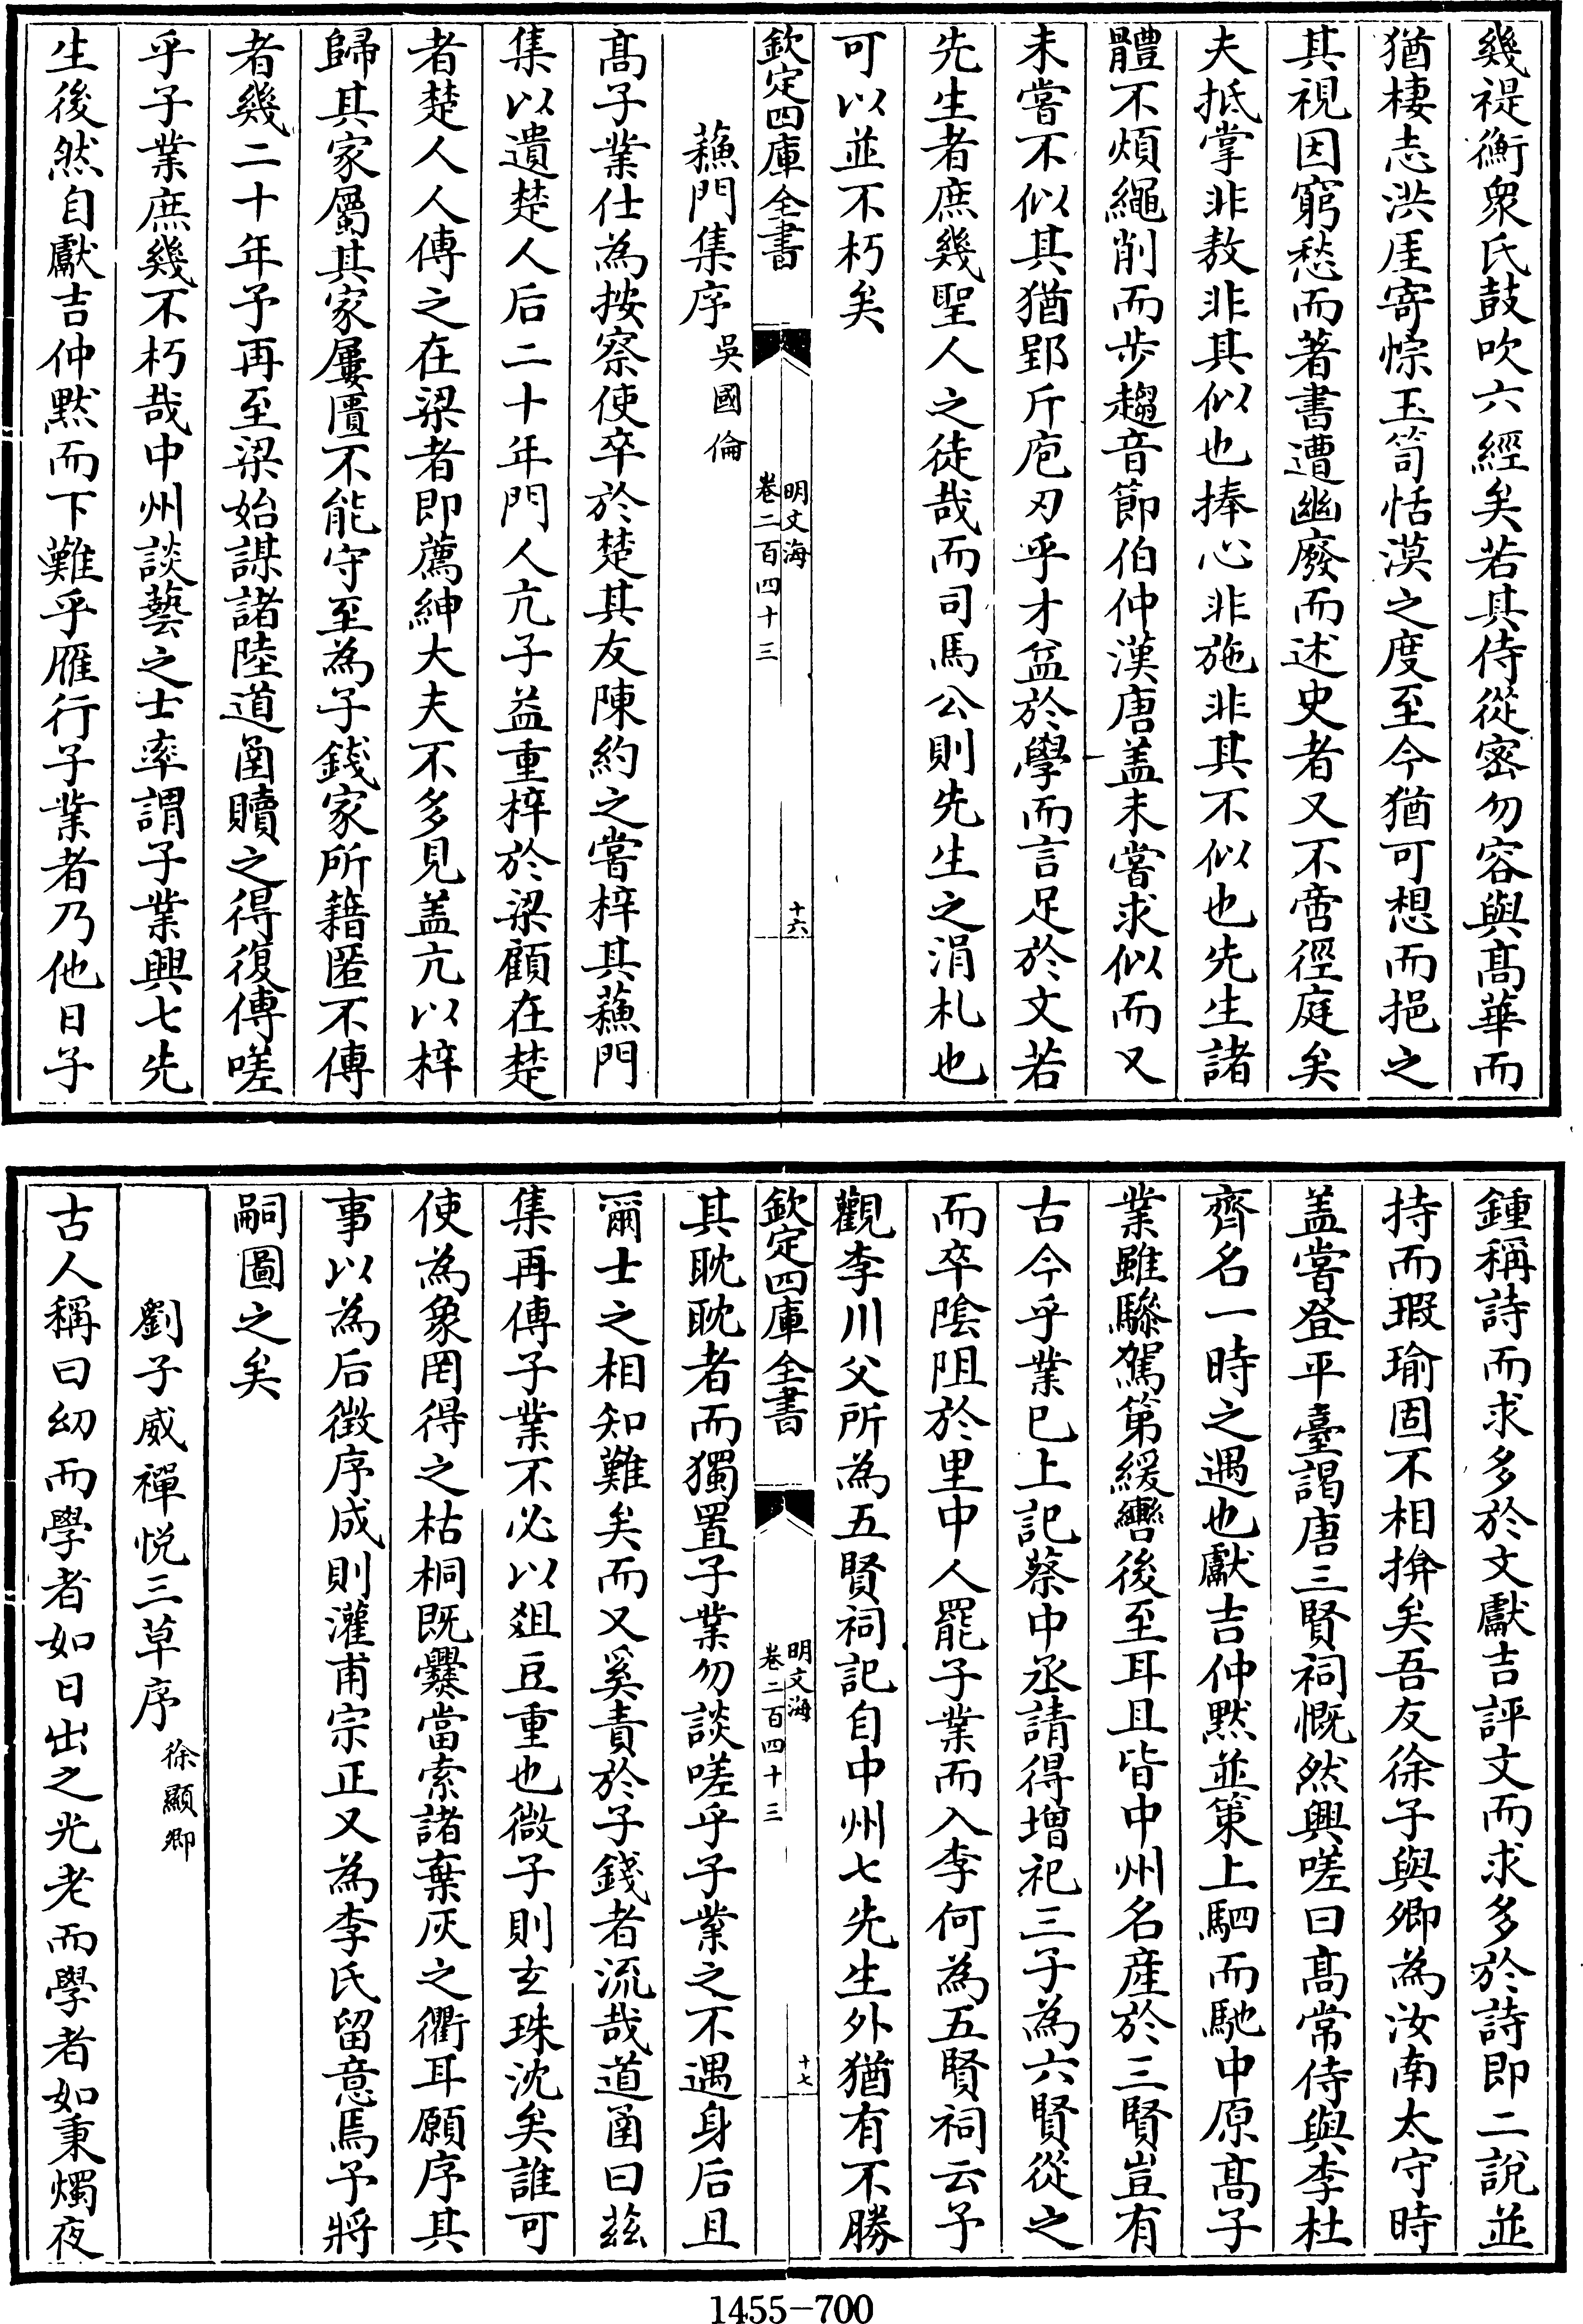 幾禔衡衆氏鼓吹六經矣若其侍從密勿容與髙華而
猶棲志洪厓寄悰玉笥恬漠之度至今猶可想而挹之
其視因窮愁而著書遭幽廢而述史者又不啻徑庭矣
夫抵掌非敖非其似也捧心非施非其不似也先生諸
體不煩繩削而步趨音節伯仲漢唐盖未嘗求似而又
未嘗不似其猶郢斤庖刃乎才益於學而言足於文若
先生者庶幾聖人之徒哉而司馬公則先生之涓札也
可以並不朽矣
欽定四庫全書
明文海
卷二百四十三
十六
蘓門集序
吳國倫
髙子業仕為按察使卒於楚其友陳約之嘗梓其蘓門
集以遺楚人后二十年門人亢子益重梓於梁顧在楚
者楚人人傳之在梁者即薦紳大夫不多見盖亢以梓
歸其家屬其家屢匱不能守至為子錢家所籍匿不傳
者幾二十年予再至梁始謀諸陸道凾贖之得復傳嗟
乎子業庶幾不朽哉中州談藝之士率謂子業興七先
生後然自獻吉仲黙而下難乎雁行子業者乃他日子
鍾稱詩而求多於文獻吉評文而求多於詩即二說並
持而瑕瑜固不相揜矣吾友徐子與卿為汝南太守時
盖嘗登平臺謁唐三賢祠慨然興嗟曰髙常侍與李杜
齊名一時之遇也獻吉仲黙並策上駟而馳中原髙子
業雖驂駕第緩轡後至耳且皆中州名產於三賢豈有
古今乎業已上記蔡中丞請得增祀三子為六賢從之
而卒陰阻於里中人罷子業而入李何為五賢祠云予
觀李川父所為五賢祠記自中州七先生外猶有不勝
欽定四庫全書
明文海
卷二百四十三
十七
其眈眈者而獨置子業勿談嗟乎子業之不遇身后且
爾士之相知難矣而又奚責於子錢者流哉道凾曰兹
集再傳子業不必以爼豆重也微子則玄珠沈矣誰可
使為象罔得之枯桐既爨當索諸棄灰之衢耳願序其
事以為后徴序成則灌甫宗正又為李氏留意焉予將
嗣圖之矣
劉子威禪悦三草序
徐顯卿
古人稱曰幼而學者如日出之光老而學者如秉燭夜
1455-700